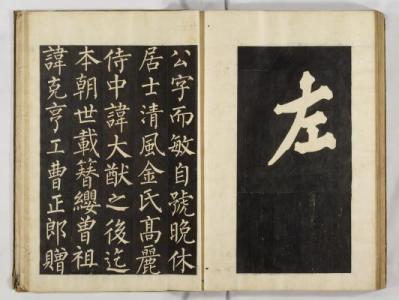 左
公字而敏自號晚休
居士清風金氏高麗
侍中諱大猷之後迄
本朝世載簪纓曾祖
諱克亨工曹正郎贈